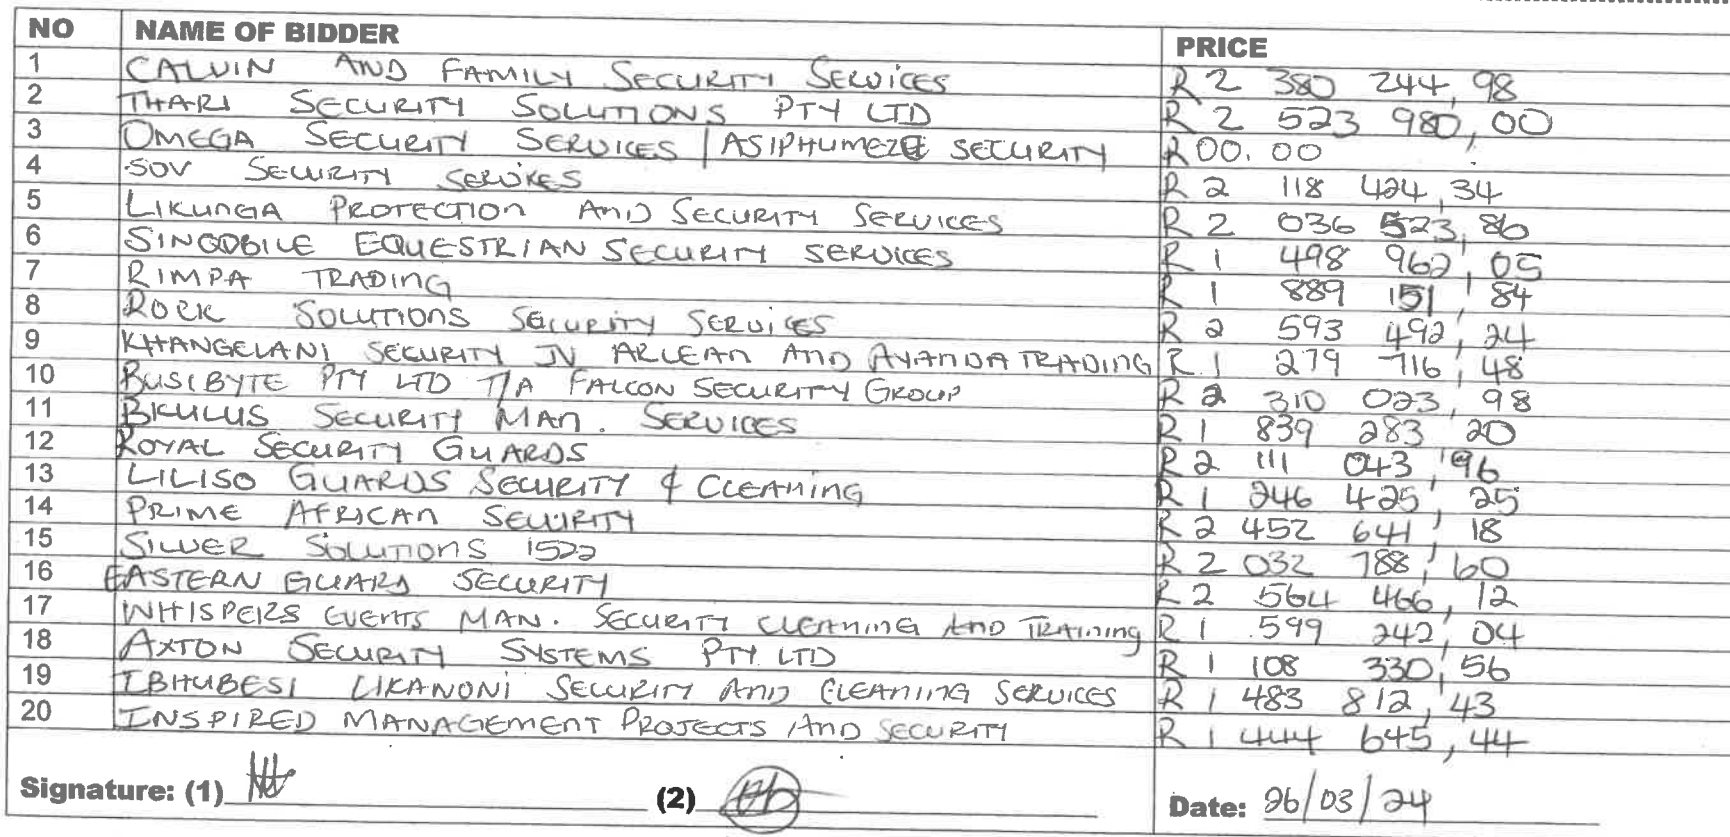 NO NAME OF BIDDER PRICE
1 CALVIN AND FAMILY SECURITY SERVICES R 2 380 244,98
2 THARI SECURITY SOLUTIONS PTY LTD R 2 523 980,00
3 OMEGA SECURITY SERVICES / ASIPHUMEZE SECURITY R00.00
4 SOV SECURITY SERVICES R 2 118 424,34
5 LIKUNGA PROTECTION AND SECURITY SERVICES R 2 036 523,86
6 SINGOBILE EQUESTRIAN SECURITY SERVICES R 1 498 962,05
7 RIMPA TRADING R 1 889 151,84
8 ROCK SOLUTIONS SECURITY SERVICES R 2 593 492,24
9 KHANGELANI SECURITY JV ARLEAN AND AYANDA TRADING R.1 279 716,48
10 BUSIBYTE PTY LTD T/A FALCON SECURITY GROUP R 2 310 023,98
11 BKULUS SECURITY MAN. SERVICES R 1 839 283,20
12 ROYAL SECURITY GUARDS R 2 111 043,96
13 LILISO GUARDS SECURITY & CLEANING R 1 246 425,25
14 PRIME AFRICAN SECURITY R 2 452 641,18
15 SILVER SOLUTIONS 1522 R 2 032 788,60
16 EASTERN GUARD SECURITY R 2 564 466,12
17 WHISPERS EVENTS MAN. SECURITY CLEANING AND TRAINING R 1 599 242,04
18 AXTON SECURITY SYSTEMS PTY LTD R 1 108 330,56
19 IBHUBESI LIKANONI SECURITY AND CLEANING SERVICES R 1 483 812,43
20 INSPIRED MANAGEMENT PROJECTS AND SECURITY R 1 444 645,44
Signature: (1) (2) Date: 26/03/24